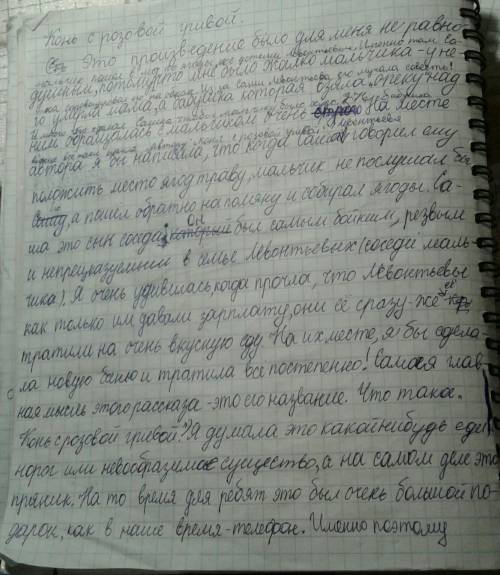 Конь с розовой гривой.
Это произведение было для меня не равно-
душным, потому что мне было жалко мальчика - у не-
го умерла мама, а бабушка которая взяла опеку над
ним обращалась с мальчиком очень строго. На месте
автора я бы написала, что когда Саша Левонтьев говорил ему
положить место ягод траву, мальчик не послушал бы
Сашу, а пошел обратно на поляну и собирал ягоды. Са-
ша это сын соседа, Он был самым бойким, резвым
и непредсказуемым в семье Левонтьевых (соседи маль-
чика). Я очень удивилась, когда прочла, что Левонтьевы
как только им давали зарплату, они её сразу-же
тратили на очень вкусную еду. На их месте, я бы сдела-
ла новую баню и тратила все постепенно! Самая глав-
ная мысль этого рассказа - это его название. Что такое.
Конь с розовой гривой? Я думала это какой нибудь еди-
норог или невообразимое существо, а на самом деле это
пряник. На то время для ребят это был очень большой по-
дарок, как в наше время - телефон. Именно поэтому